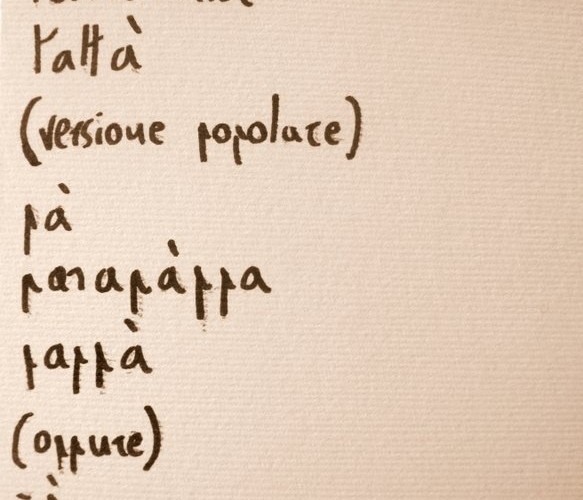 (versione popolare)
pà
parapàppa
pappà
(oppure)